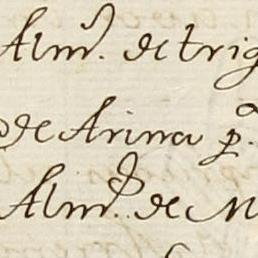 Alm.º de trig
de Arina p.ª
Alm.º de M